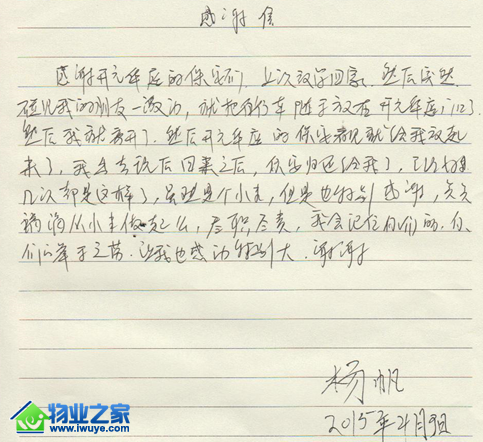 感谢信
感谢开元华庭的保安们，上次放学回家，然后突然
碰见我的朋友一激动，就把自行车随手放在开元华庭门口了
然后我就离开了，然后开元华庭的保安看见就给我放起
来了，我出去玩后回来之后，保安归还给我了，
几次都是这样了，虽然是个小事，但是也特别感谢，点点
滴滴从小事做起么，尽职尽责，我会记住你们的，你
们的举手之劳，让我也感动特别大，谢谢
杨帆
2015年4月9日
物业之家
www.iwuye.com